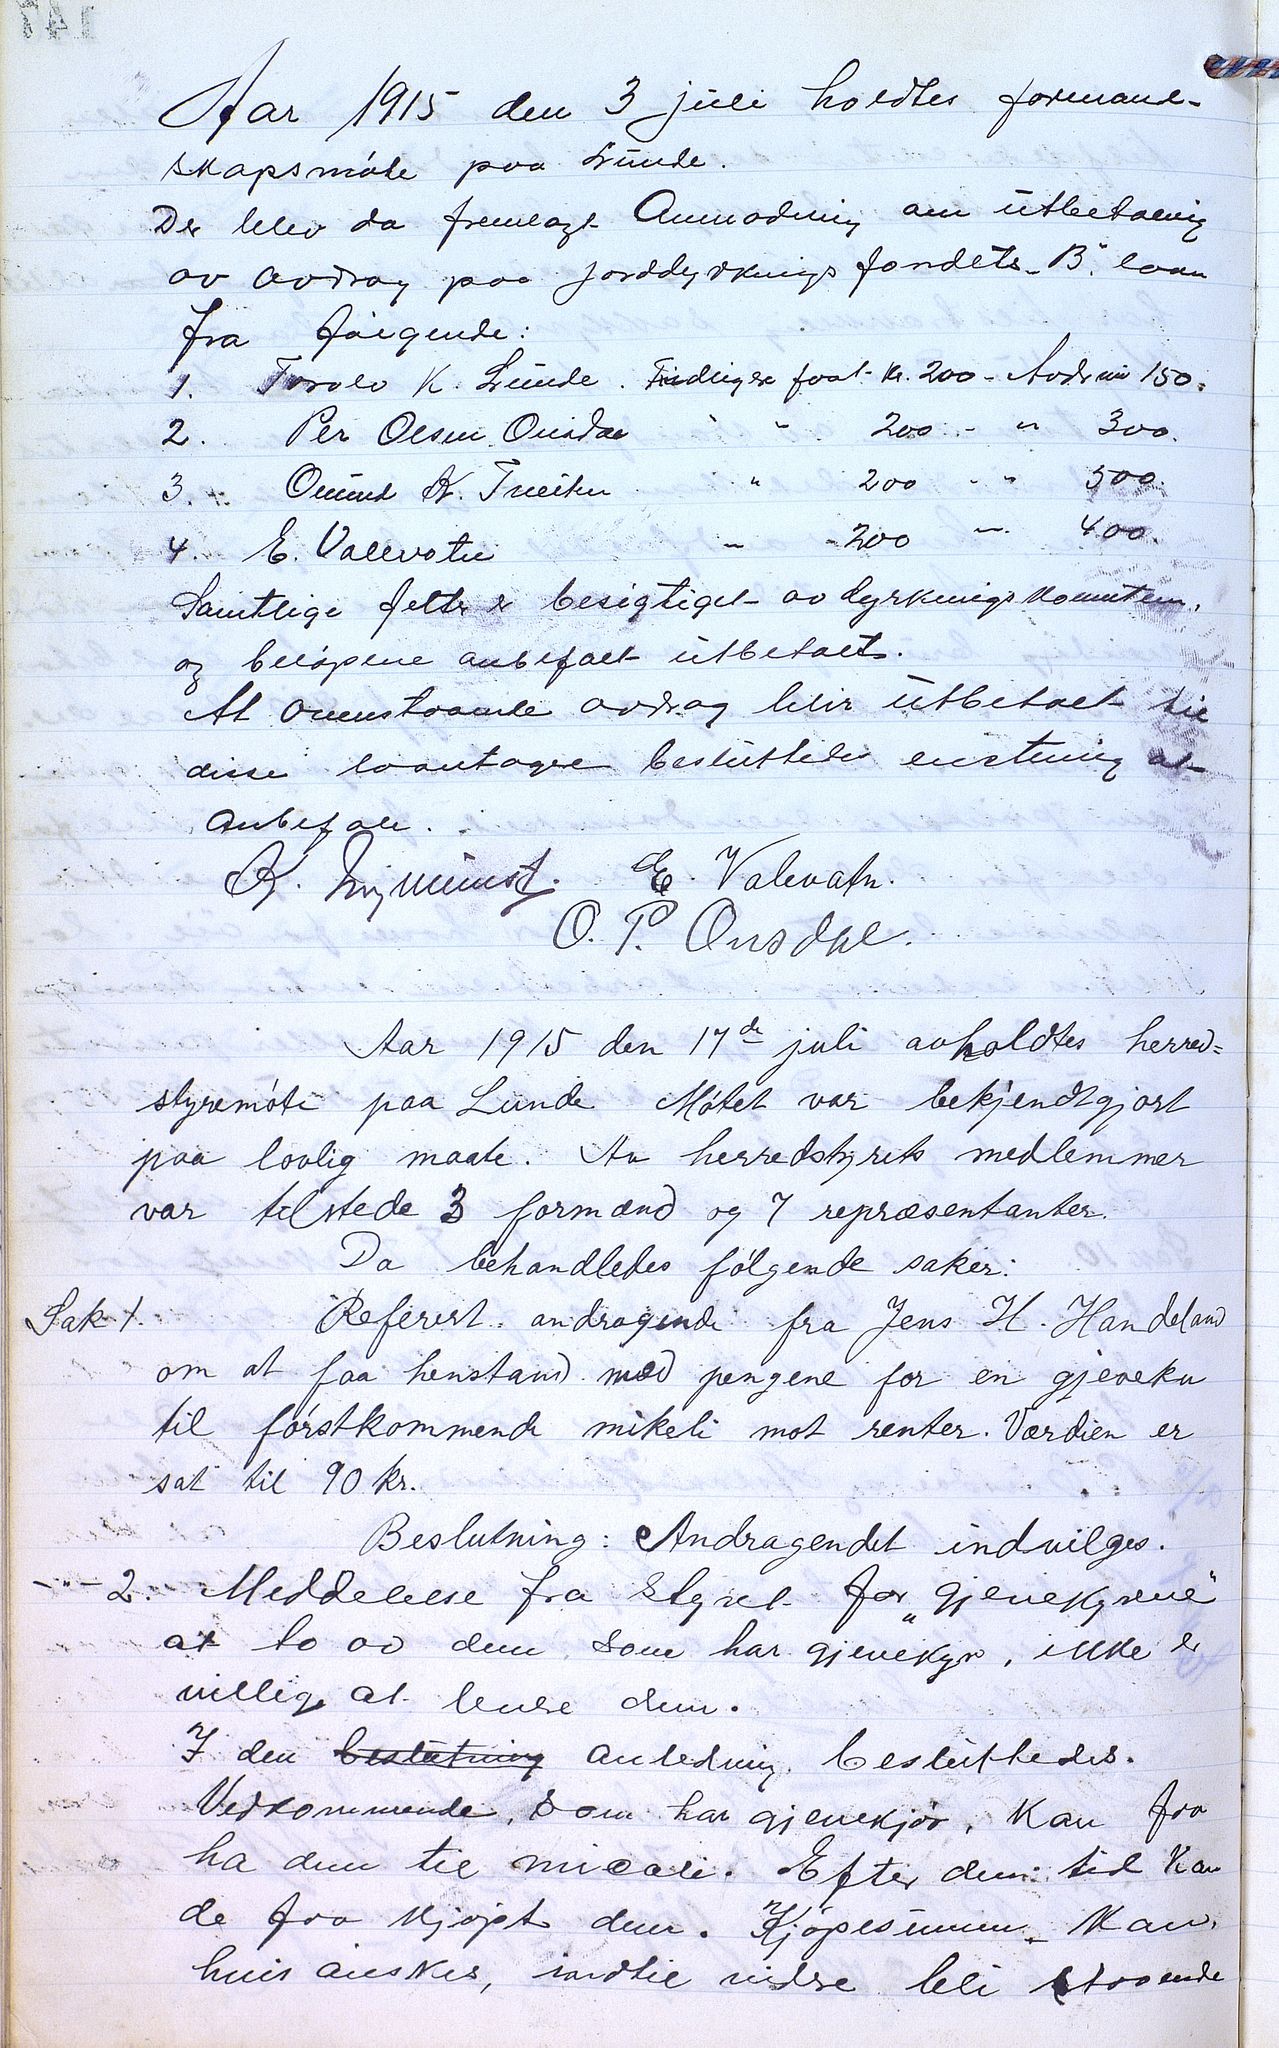 Aar 1915 den 3 juli holdtes formand-
skapsmøte paa Lunde.
Der blev da fremlagt Anmodning om utbetaling
av avdrag paa jorddyrknings fondets „B“ laan
fra følgende:
1. Torolv K. Lunde. Tidligere faat Kr. 200 - Andrar 150.
2. Per Olsen Ousdal " - 200 - " 300.
3. Omund K. Tveiten " 200 - " 500.
4. E. Valevatn - - 200 - 400.
Samtlige felter er besigtiget av dyrkningskomiteen,
og beløpene anbefalt utbetalt.
At ovenstaaende avdrag blir utbetalt til
disse laantagere besluttedes enstemig at
anbefale.
E. Valevatn.
O. P. Ousdal.
Aar 1915 den 17de juli avholdtes herred=
styremøte paa Lunde Møtet var bekjendtgjort
paa lovlig maate. Av herredstyrets medlemmer
var tilstede 3 formænd og 7 repræsentanter.
Da behandledes følgende saker:
Sak 1. Referert andragende fra Jens H. Handeland
om at faa henstand med pengene for en gjeveku
til førstkommende mikeli mot renter. Værdien er
sat til 90 kr.
Beslutning: Andragendet indvilges.
-"- 2. Meddelelse fra styret for „gjevekyrne“
at to av dem som har gjevekyr, ikke er
villige at levere dem.
I den beslutning anledning besluttedes.
Vedkommende, som har gjevekjør, kan faa
ha dem til micali. Efter den tid kan
de faa kjøpt dem. Kjøpesummen kan,
hvis ønskes, indtil videre bli staaende
147